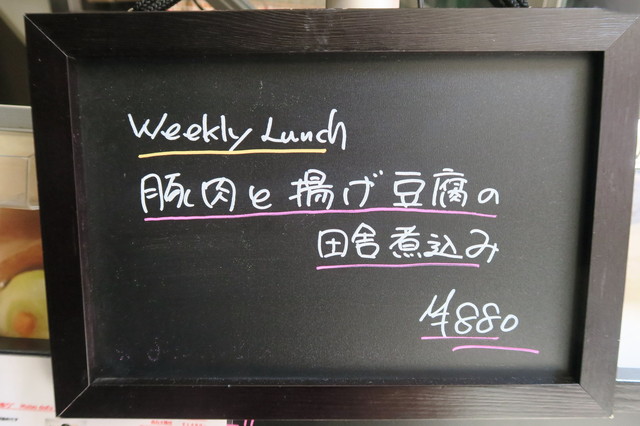 Weekly Lunch
豚肉と揚げ豆腐の
田舎煮込み
¥880